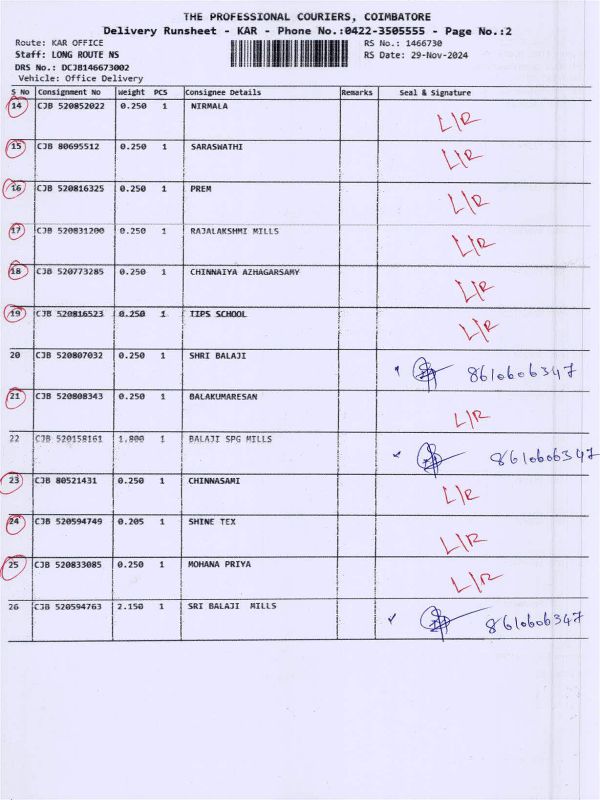 THE PROFESSIONAL COURIERS, COIMBATORE
Delivery Runsheet - KAR - Phone No.:0422-3505555 - Page No.:2
Route: KAR OFFICE RS No.: 1466730
Staff: LONG ROUTE NS RS Date: 29-Nov-2024
DRS No.: DCJB146673002
Vehicle: Office Delivery
S No Consignment No Weight PCS Consignee Details Remarks Seal & Signature
14 CJB 520852022 0.250 1 NIRMALA L/R
15 CJB 80695512 0.250 1 SARASWATHI L/R
16 CJB 520816325 0.250 1 PREM L/R
17 CJB 520831200 0.250 1 RAJALAKSHMI MILLS L/R
18 CJB 520773285 0.250 1 CHINNAIYA AZHAGARSAMY L/R
19 CJB 520816523 0.250 1 TIPS SCHOOL L/R
20 CJB 520807032 0.250 1 SHRI BALAJI 8610606347
21 CJB 520808343 0.250 1 BALAKUMARESAN L/R
22 CJB 520158161 1.800 1 BALAJI SPG MILLS 8610606347
23 CJB 80521431 0.250 1 CHINNASAMI L/R
24 CJB 520594749 0.205 1 SHINE TEX L/R
25 CJB 520833085 0.250 1 MOHANA PRIYA L/R
26 CJB 520594763 2.150 1 SRI BALAJI MILLS 8610606347